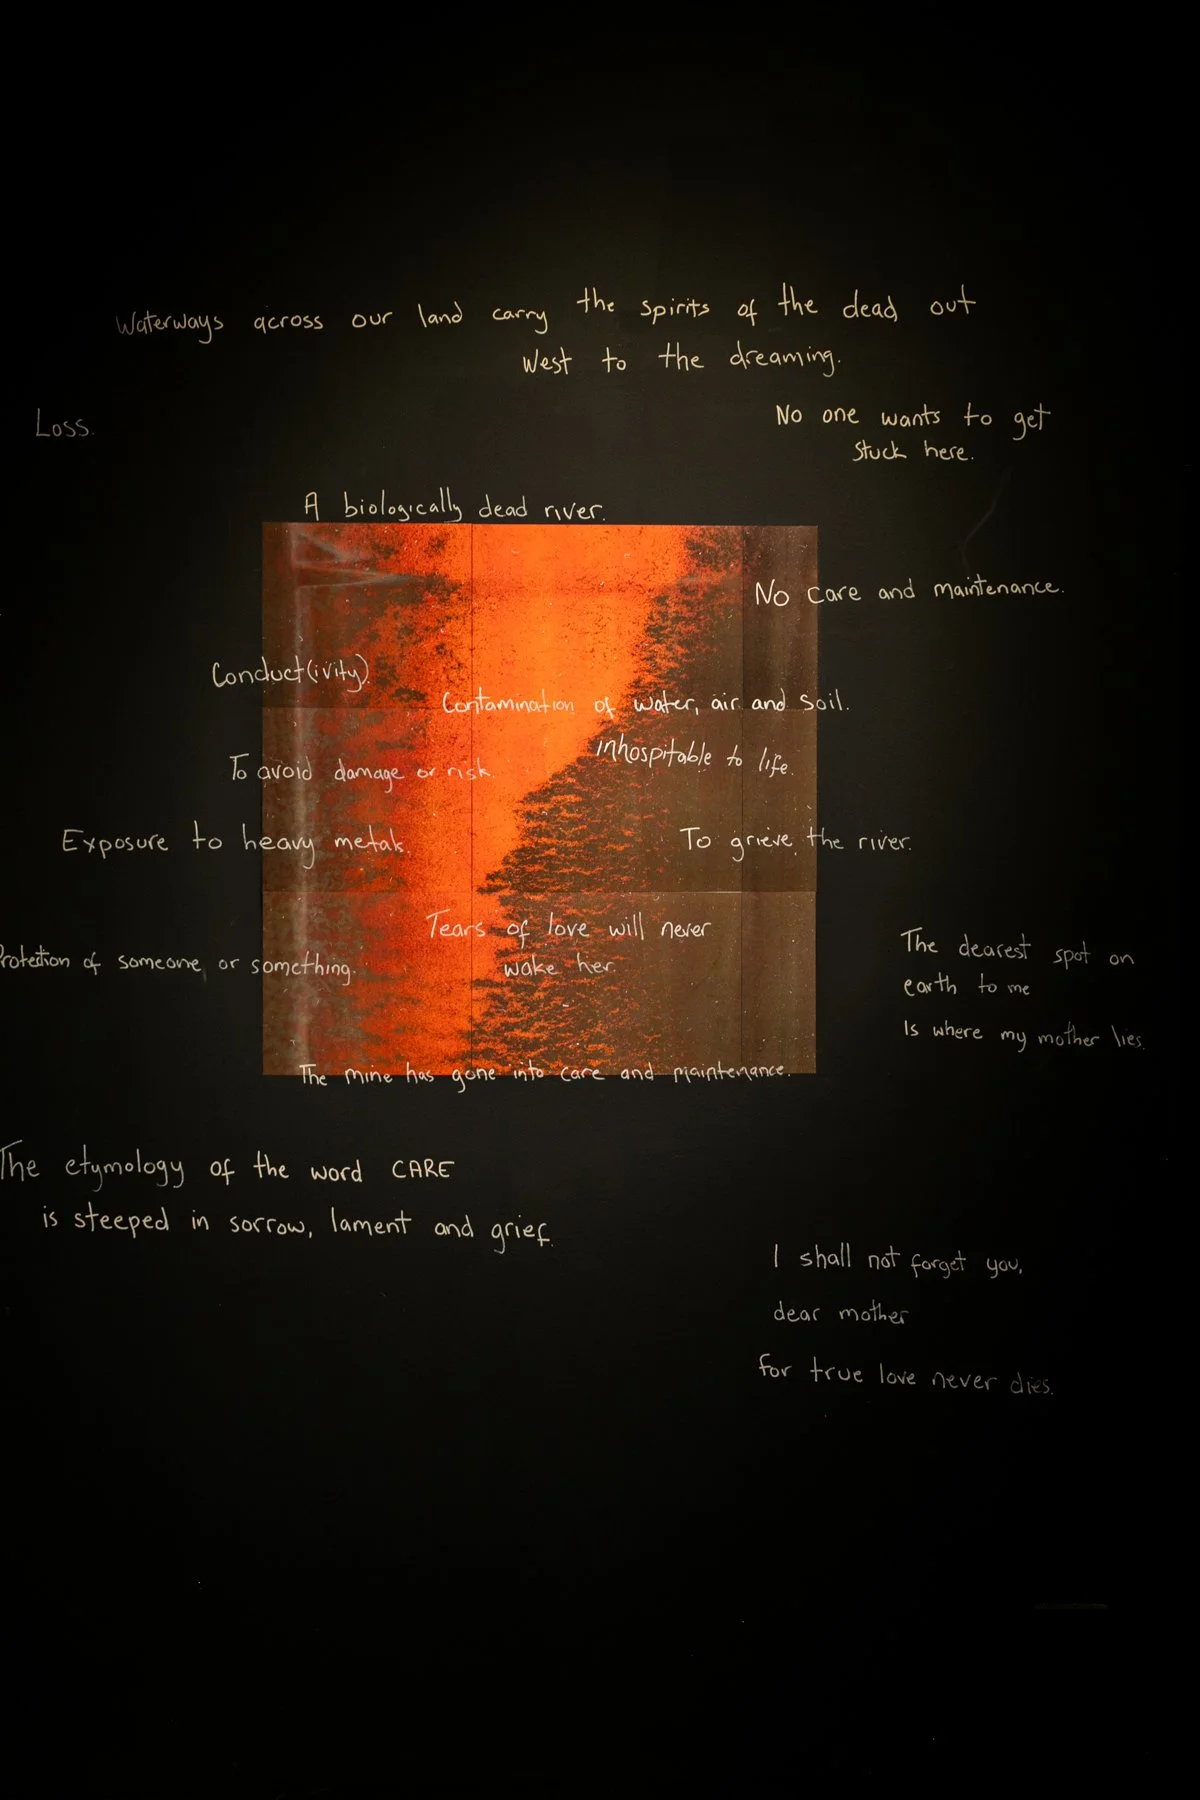 Waterways across our land carry the spirits of the dead out
West to the dreaming.
Loss.
No one wants to get
stuck here.
A biologically dead river.
No care and maintenance.
Conduct(ivity)
Contamination of water, air and soil.
inhospitable to life.
To avoid damage or risk.
Exposure to heavy metals.
To grieve the river.
Tears of love will never
wake her.
Protection of someone or something.
The dearest spot on
earth to me
Is where my mother lies.
The mine has gone into care and maintenance.
The etymology of the word CARE
is steeped in sorrow, lament and grief.
I shall not forget you,
dear mother
for true love never dies.